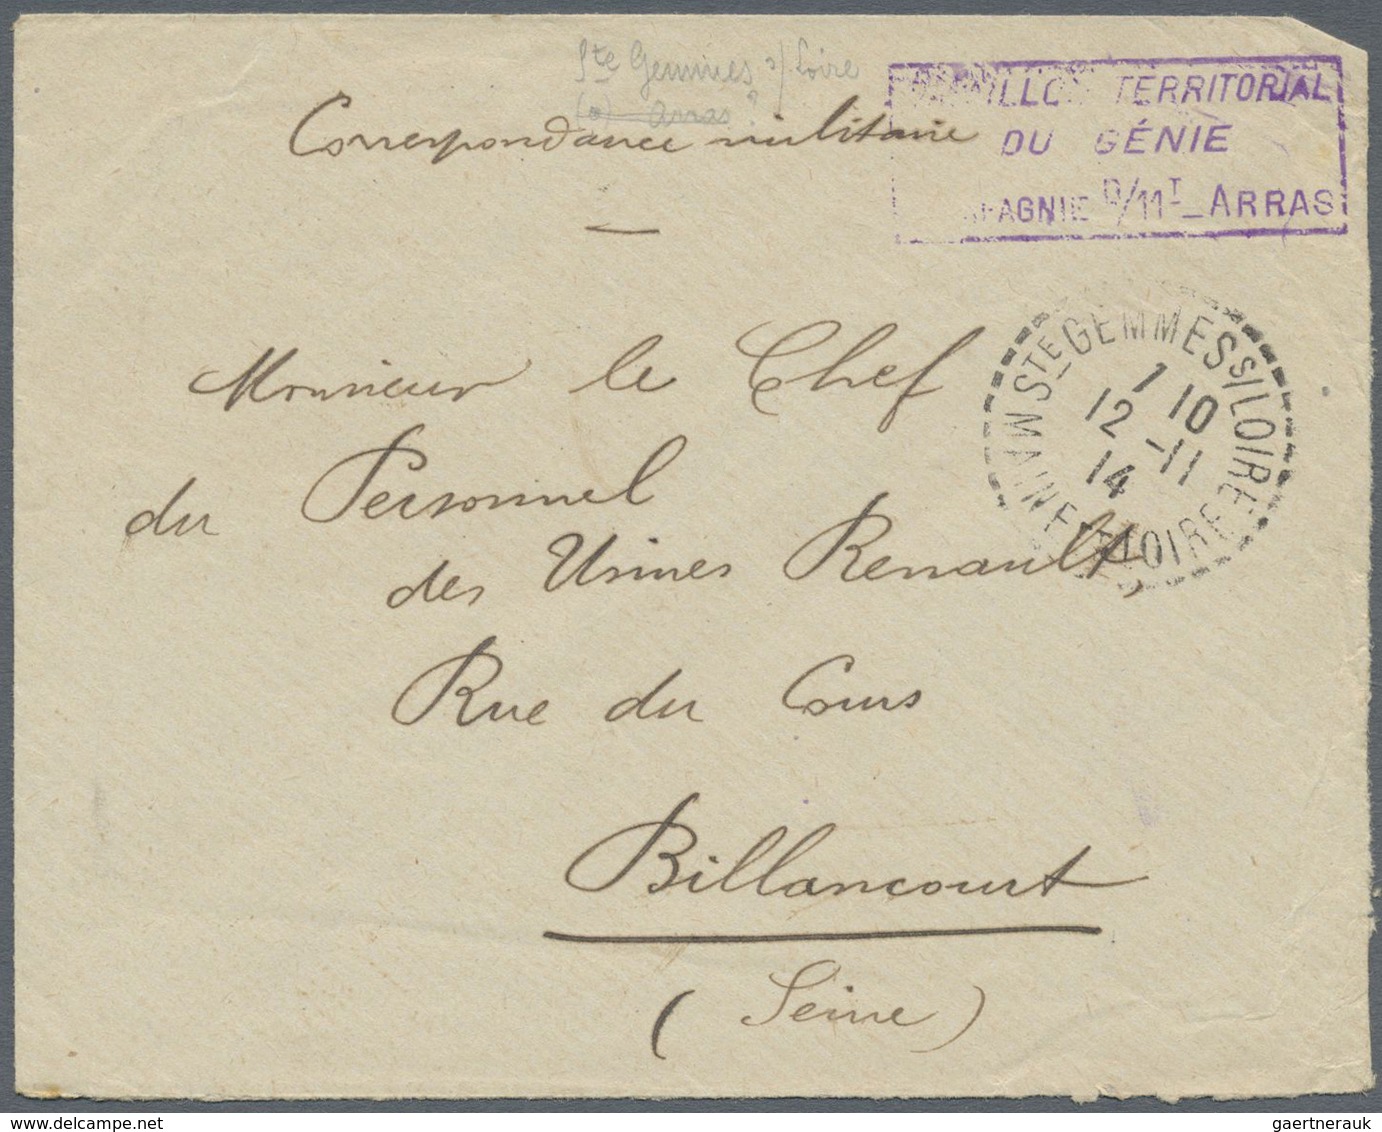 Ste Gemmes s/ Loire
(o) Arras ?
Correspondance militaire
TERRITORIAL
DU GÉNIE
D/11T_ARRAS
STE GEMMES S/LOIRE
MAINE-ET-LOIRE
1 10
12 -11
14
Monsieur le Chef
du Personnel
des Usines Renault,
Rue du Cours
Billancourt
(Seine)
gaertnerauk delcampe.net